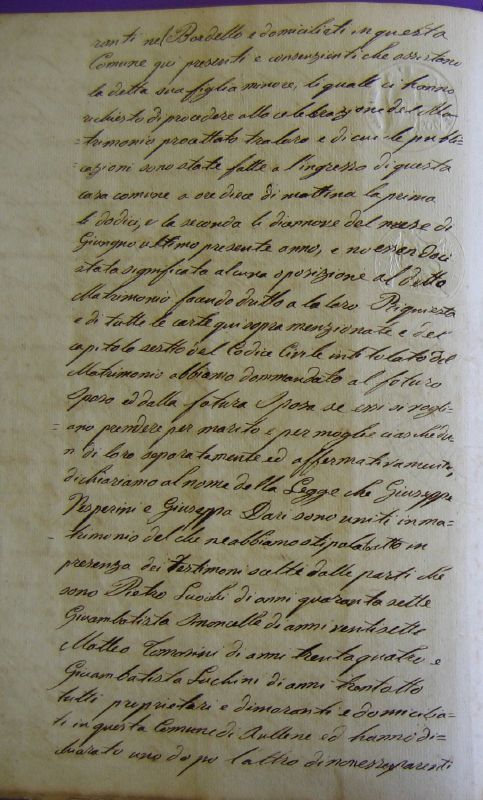 ranti nel Bordello e domiciliati in questa
Comune qui presenti e consenzienti che assistano
la detta sua figlia minore, li quali ci hanno
richiesto di procedere alla celebrazione del Ma
=trimonio proettato tra loro e di cui le publi-
=cazioni sono state fatte a l'ingresso di questa
casa comune a ore dieci di mattina la prima
li dodici, e la seconda li diannove del mese di
Giungno ultimo presente anno, e no essendoci
stata significata alcuna oposizione al detto
Matrimonio facendo dritto a la loro Riquiesta
e di tutte le carte qui sopra menzionate e del
capitolo sesto del Codice Civile intitolato del
Matrimonio abbiamo dommandato al futuro
Sposo ed dalla futura Sposa se essi si vogli-
=ano prendere per marito e per moglie ciaschedu
n di loro separatamente ed affermativamente,
dichiariamo al nome della Legge che Giuseppe
Vesperini e Giuseppa Dari sono uniti in ma=
=trimonio del che ne abbiamo stipolato atto in
presenza dei testimoni scelte dalle parti che
sono Pietro Luochi di anni quaranta sette
Giovambatista Simoncelle di anni ventisette
Matteo Tomasini di anni trentaquatro e
Giovambatista Luchini di anni trentotto
tutti proprietari e dimoranti e domicilia=
ti in questa Comune di Aullene ed hanno di-
chiarato uno do po l'altro di non essere parenti